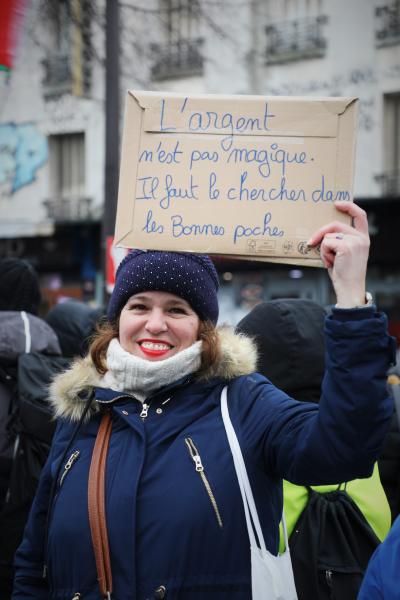 L'argent
n'est pas magique.
Il faut le chercher dans
les Bonnes poches